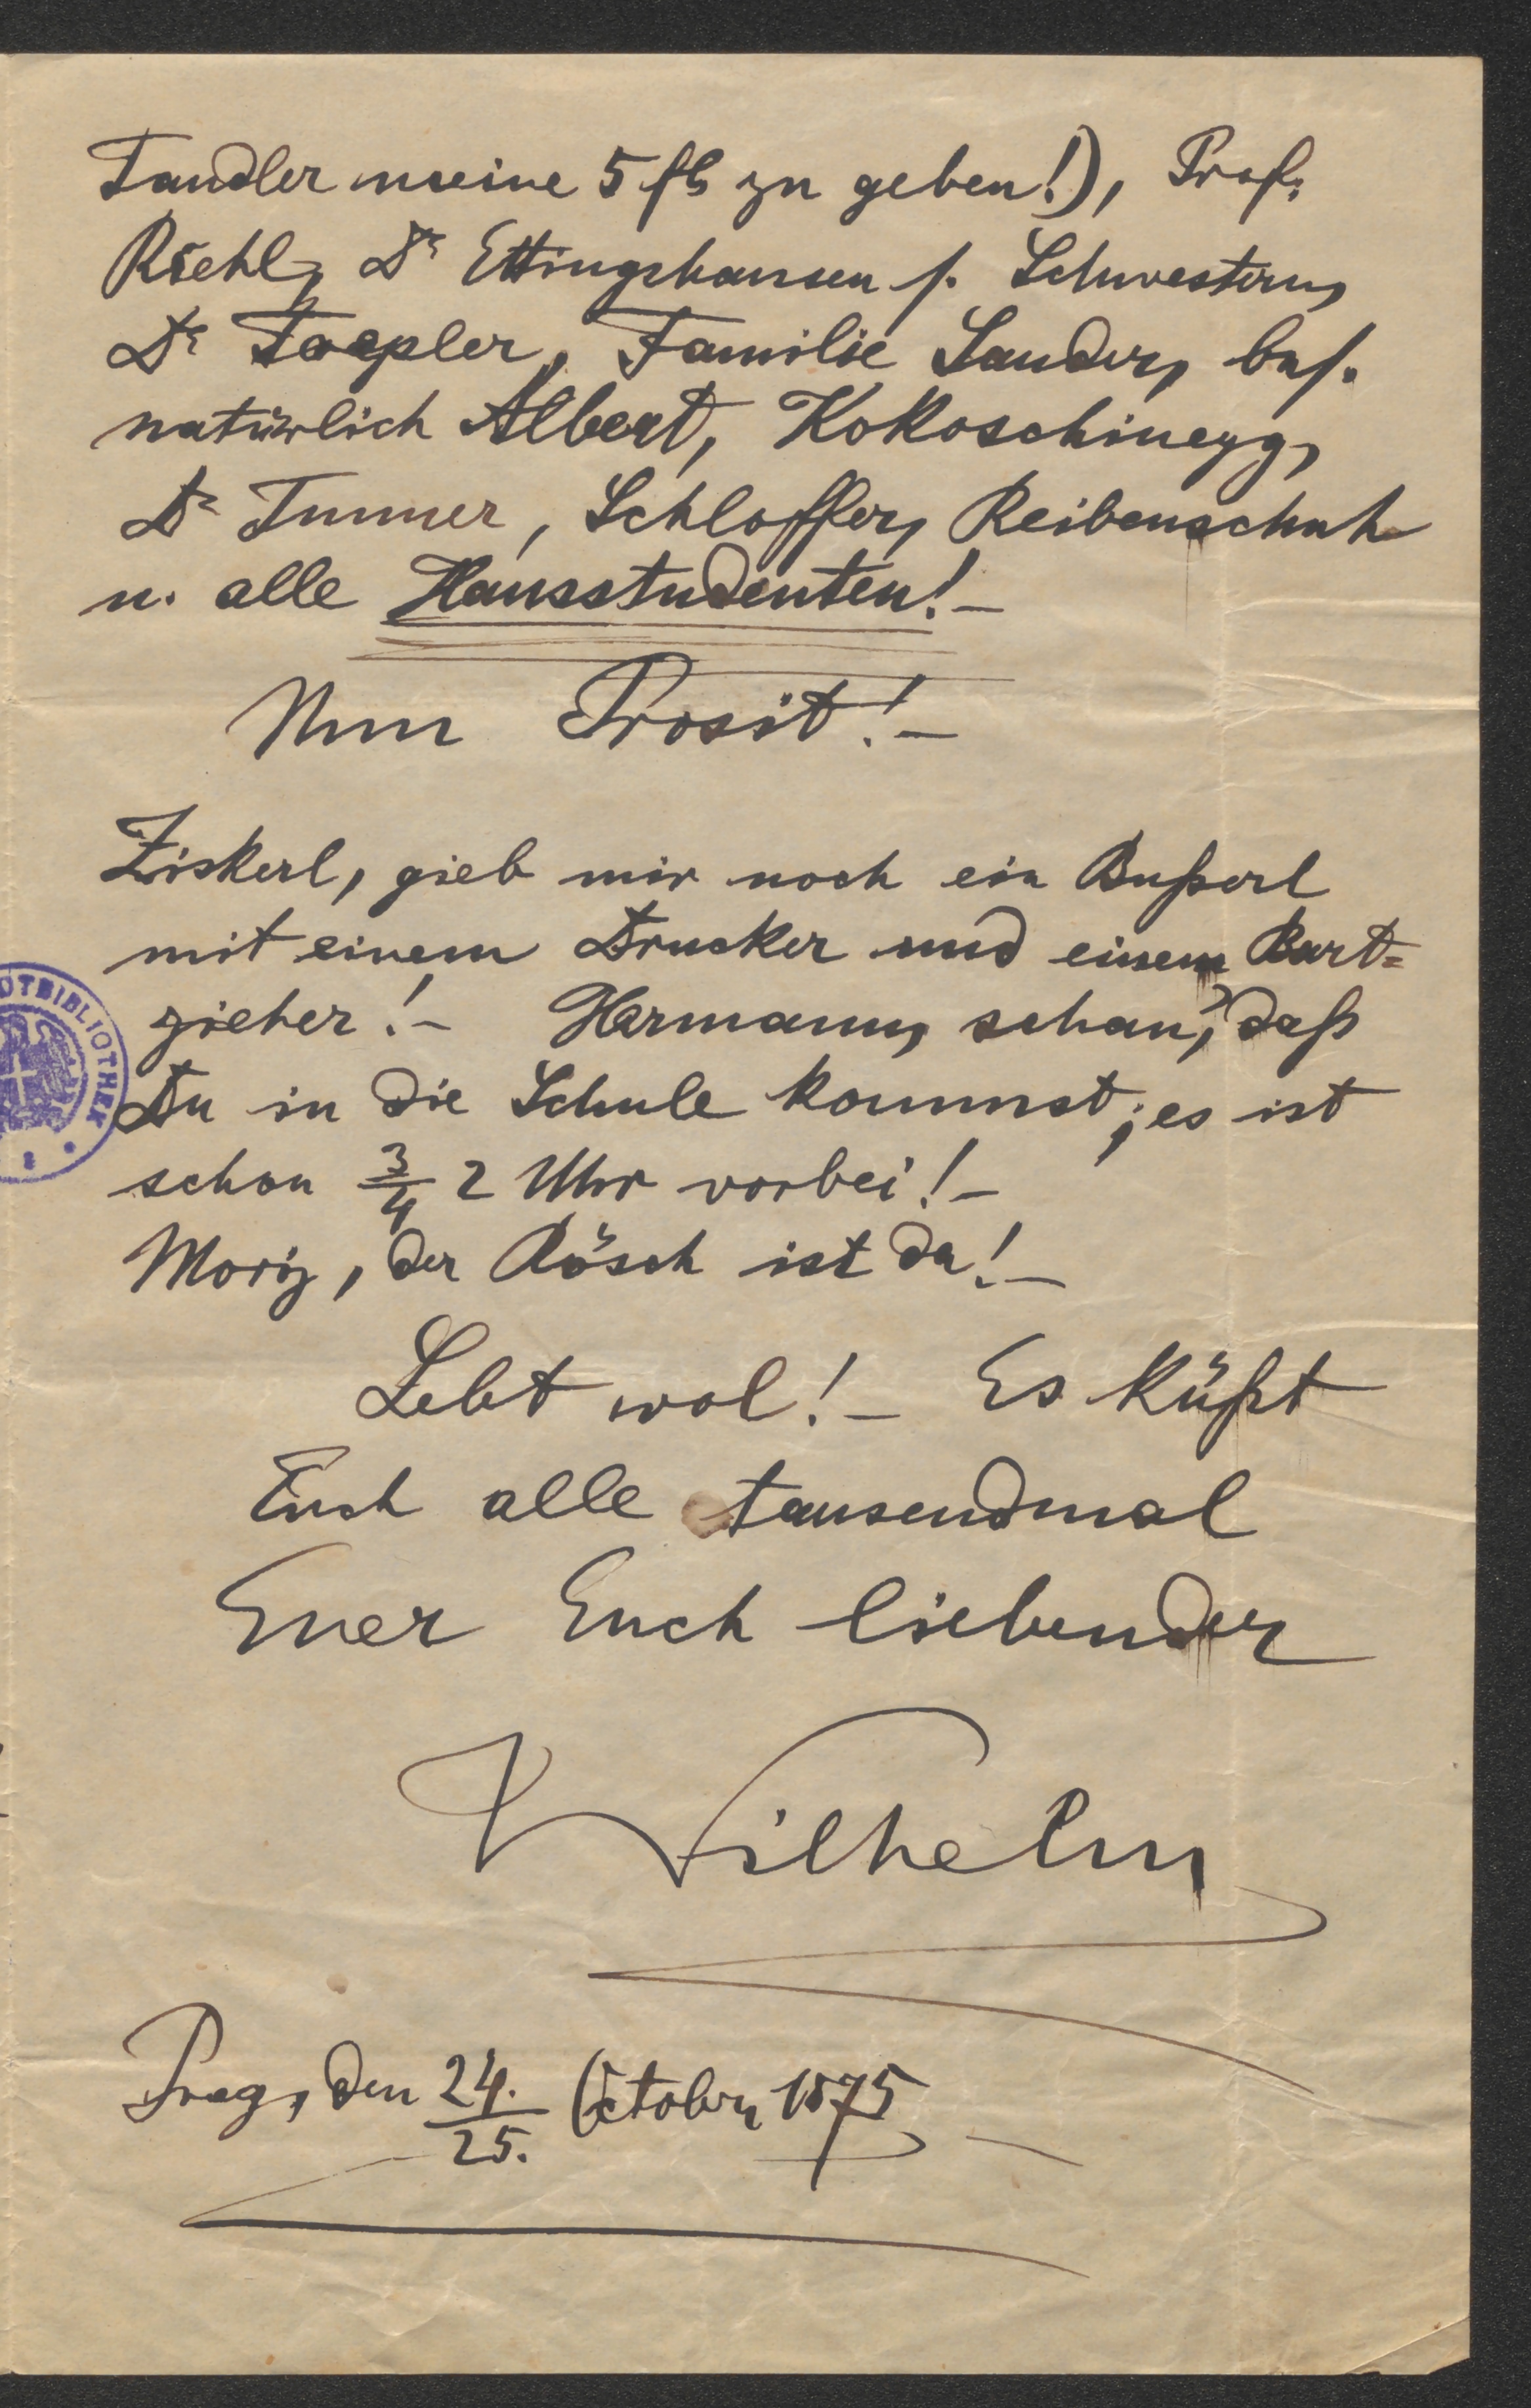 Tandler meine 5 fl zu geben!), Prof.
Riehl, Dr Ettingshausen s. Schwestern,
Dr Toepler, Familie Sander, bes.
natürlich Albert, Kokoschinegg,
Dr Tunner, Schloffer, Reibenschuh
u. alle Hausstudenten! –
Nun Prosit! –
Ziskerl, gieb mir noch ein Bußerl
mit einem Drucker und einem Bart=
zieher! – Hermann, schau, daß
Du in die Schule kommst; es ist
schon 3/4 2 Uhr vorbei! –
Moriz, der Rösch ist da! –
Lebt wol! – Es küßt
Euch alle tausendmal
Euer Euch liebender
Wilhelm
Prag, den 24./25. October 1875
DTBIBLIOTHEK